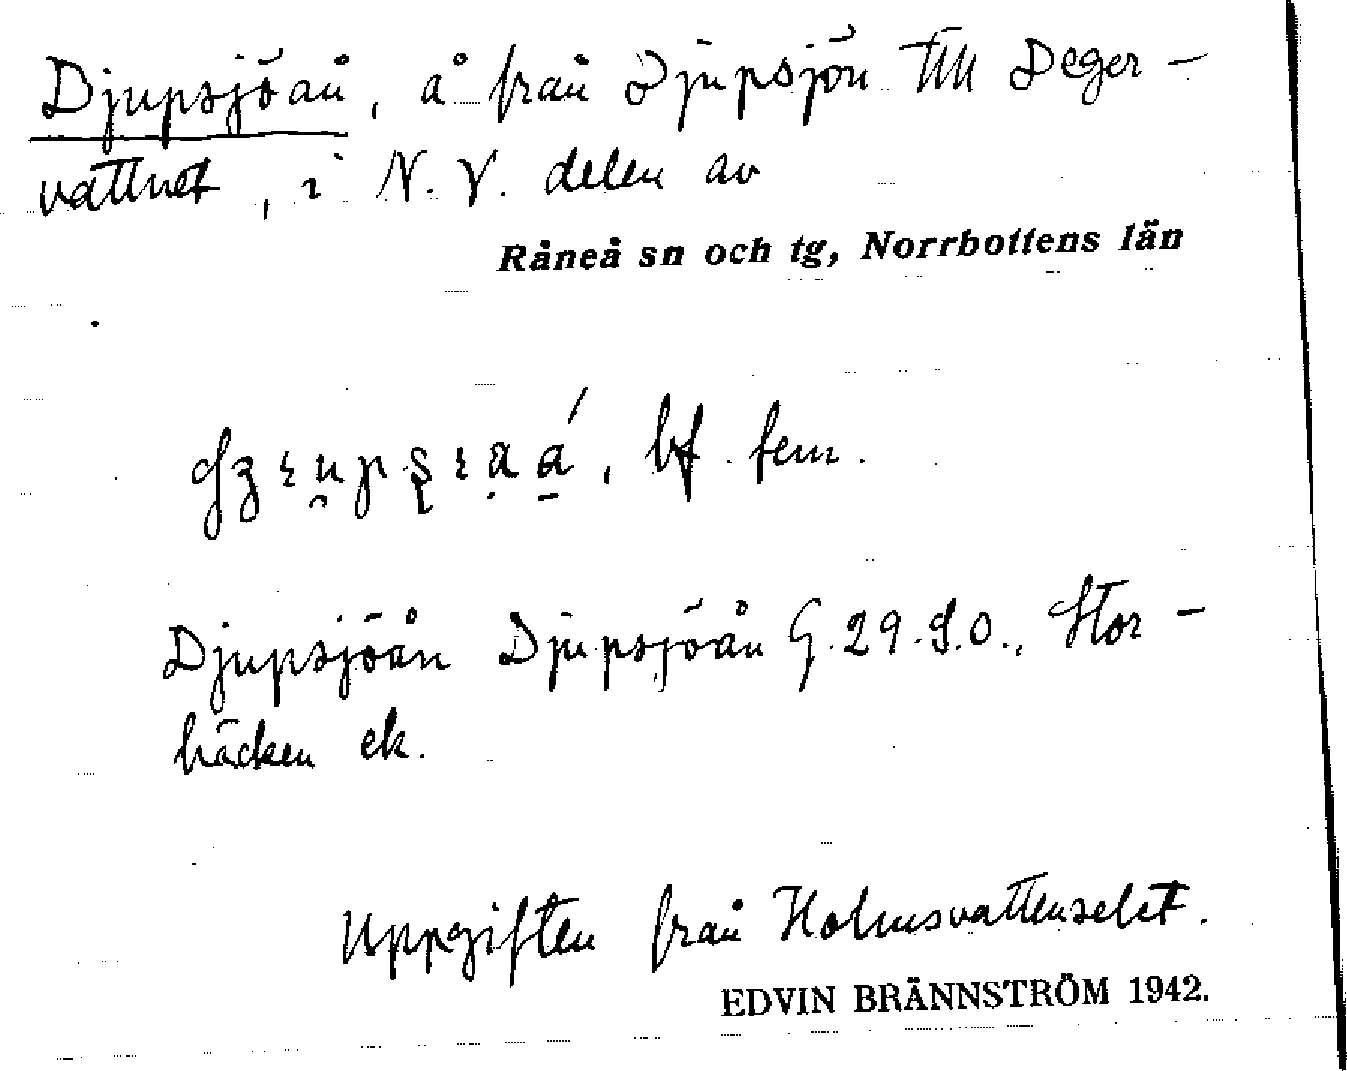 Djupsjöån, å från Djupsjön till Deger-
vattnet, i N. V. delen av
Råneå sn och tg, Norrbottens län
bf. fem.
Djupsjöån Djupsjöån G. 29. S.O., Stor-
bäcken ek.
Uppgiften från Holmsvattenselet.
EDVIN BRÄNNSTRÖM 1942.